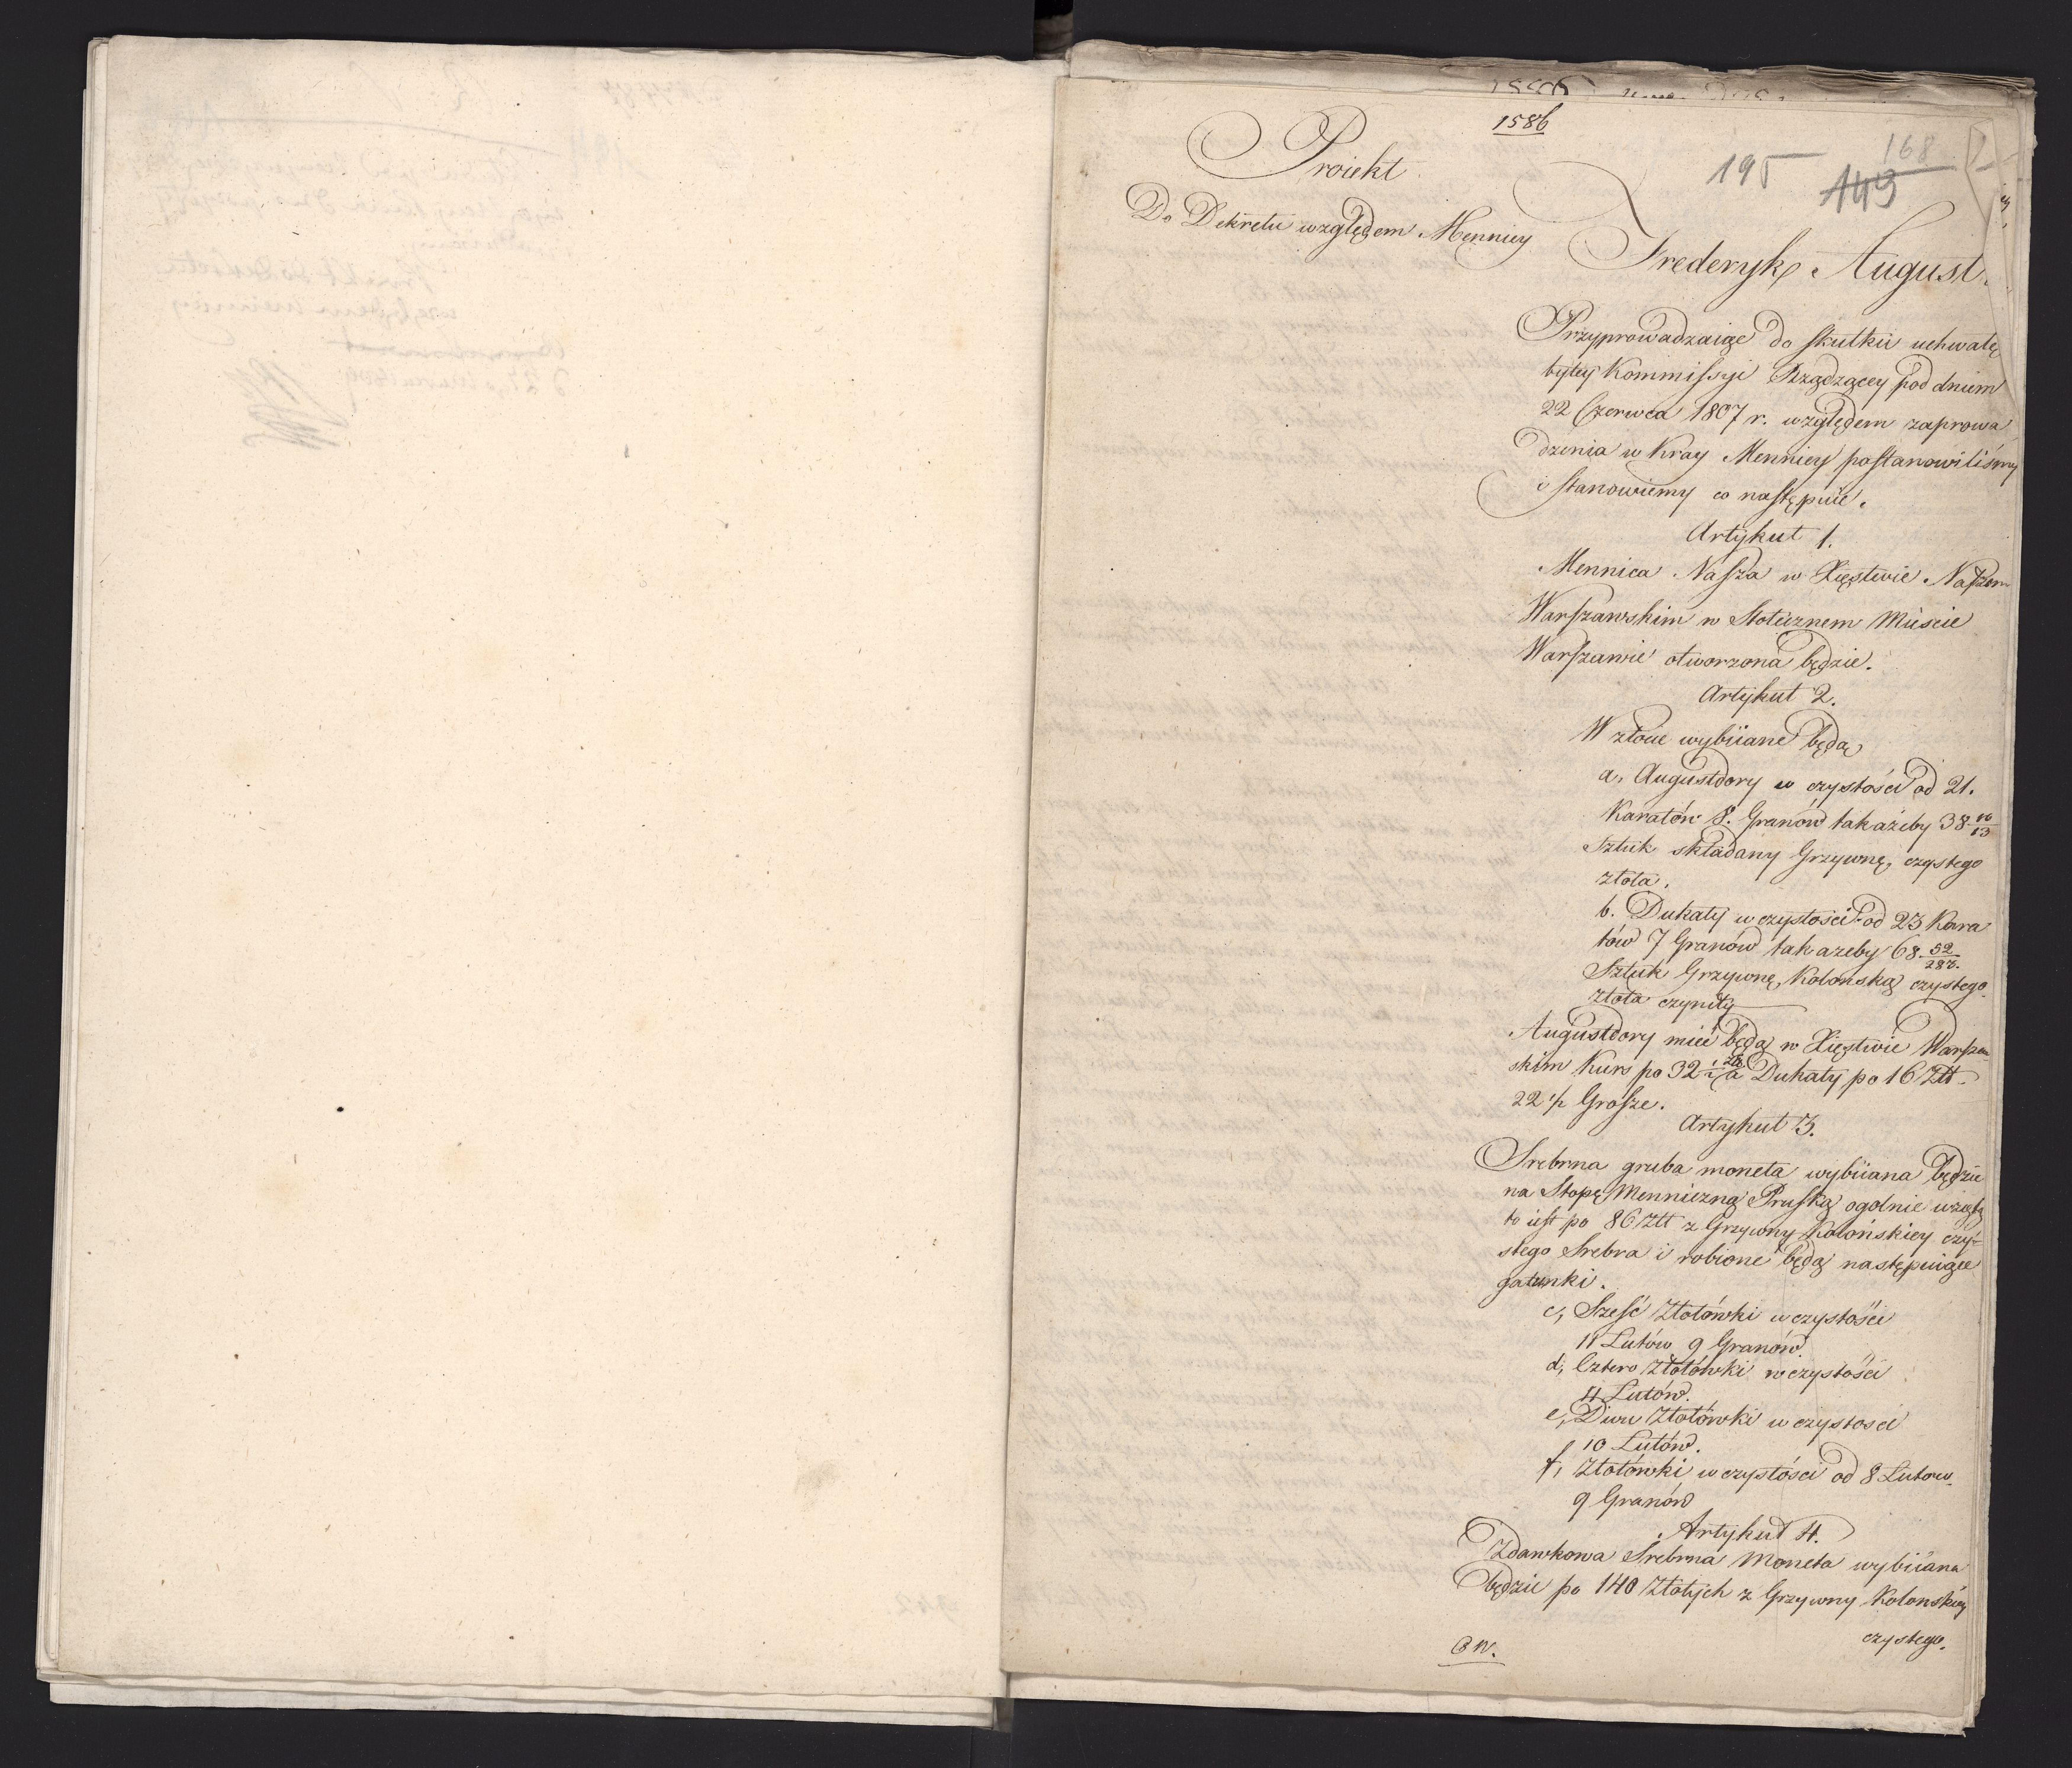 1586
195
168
149
Proiekt
Do Dekretu względem Mennicy
Frederyk August.
Przyprowadzaiąc do skutku uchwałę
byłey Kommissyi Rządzącey pod dniem
22 Czerwca 1807 r. względem zaprowa
dzenia w Kray Mennicy postanowiliśmy
i stanowiemy co następuie.
Artykuł 1.
Mennica Nasza w Xięstwie Naszem
Warszawskim w Stołecznem Mieście
Warszawie otworzona będzie.
Artykuł 2.
W złocie wybiiane będą
a, Augustdory w czystości od 21.
Karatów 8. Granów tak ażeby 38 10/13
Sztuk składany Grzywnę, czystego
złota.
b. Dukaty w czystości od 23 Kara
tów 7 Granów tak azeby 68 52/283.
Sztuk Grzywnę, Kolońską czystego
złota czyniły
Augustdory mieć będą w Xięstwie Warszaw
skim Kurs po 32 1/2 a Dukaty po 16 Złt
22 1/2 Grosze.
Artykuł 3.
Srebrna gruba moneta wybiiana będzie
na Stopę Menniczną Pruską ogolnie wziętą
to iest po 86 Złt z Grzywny Kolońskiey czy-
stego Srebra i robione będą następuiące
gatunki.
c, Sześć Złotówki w czystości
11 Lutów 9 Granów.
d, Cztero Złotówki w czystości
11 Lutów.
e, Dwu Złotówki w czystości
10 Lutów.
f, Złotówki w czystości od 8 Lutow
9 Granów
Artykuł 4.
Zdawkowa Srebrna Moneta wybiiana
będzie po 140 Złotych z Grzywny Kolonskiey
czystego.